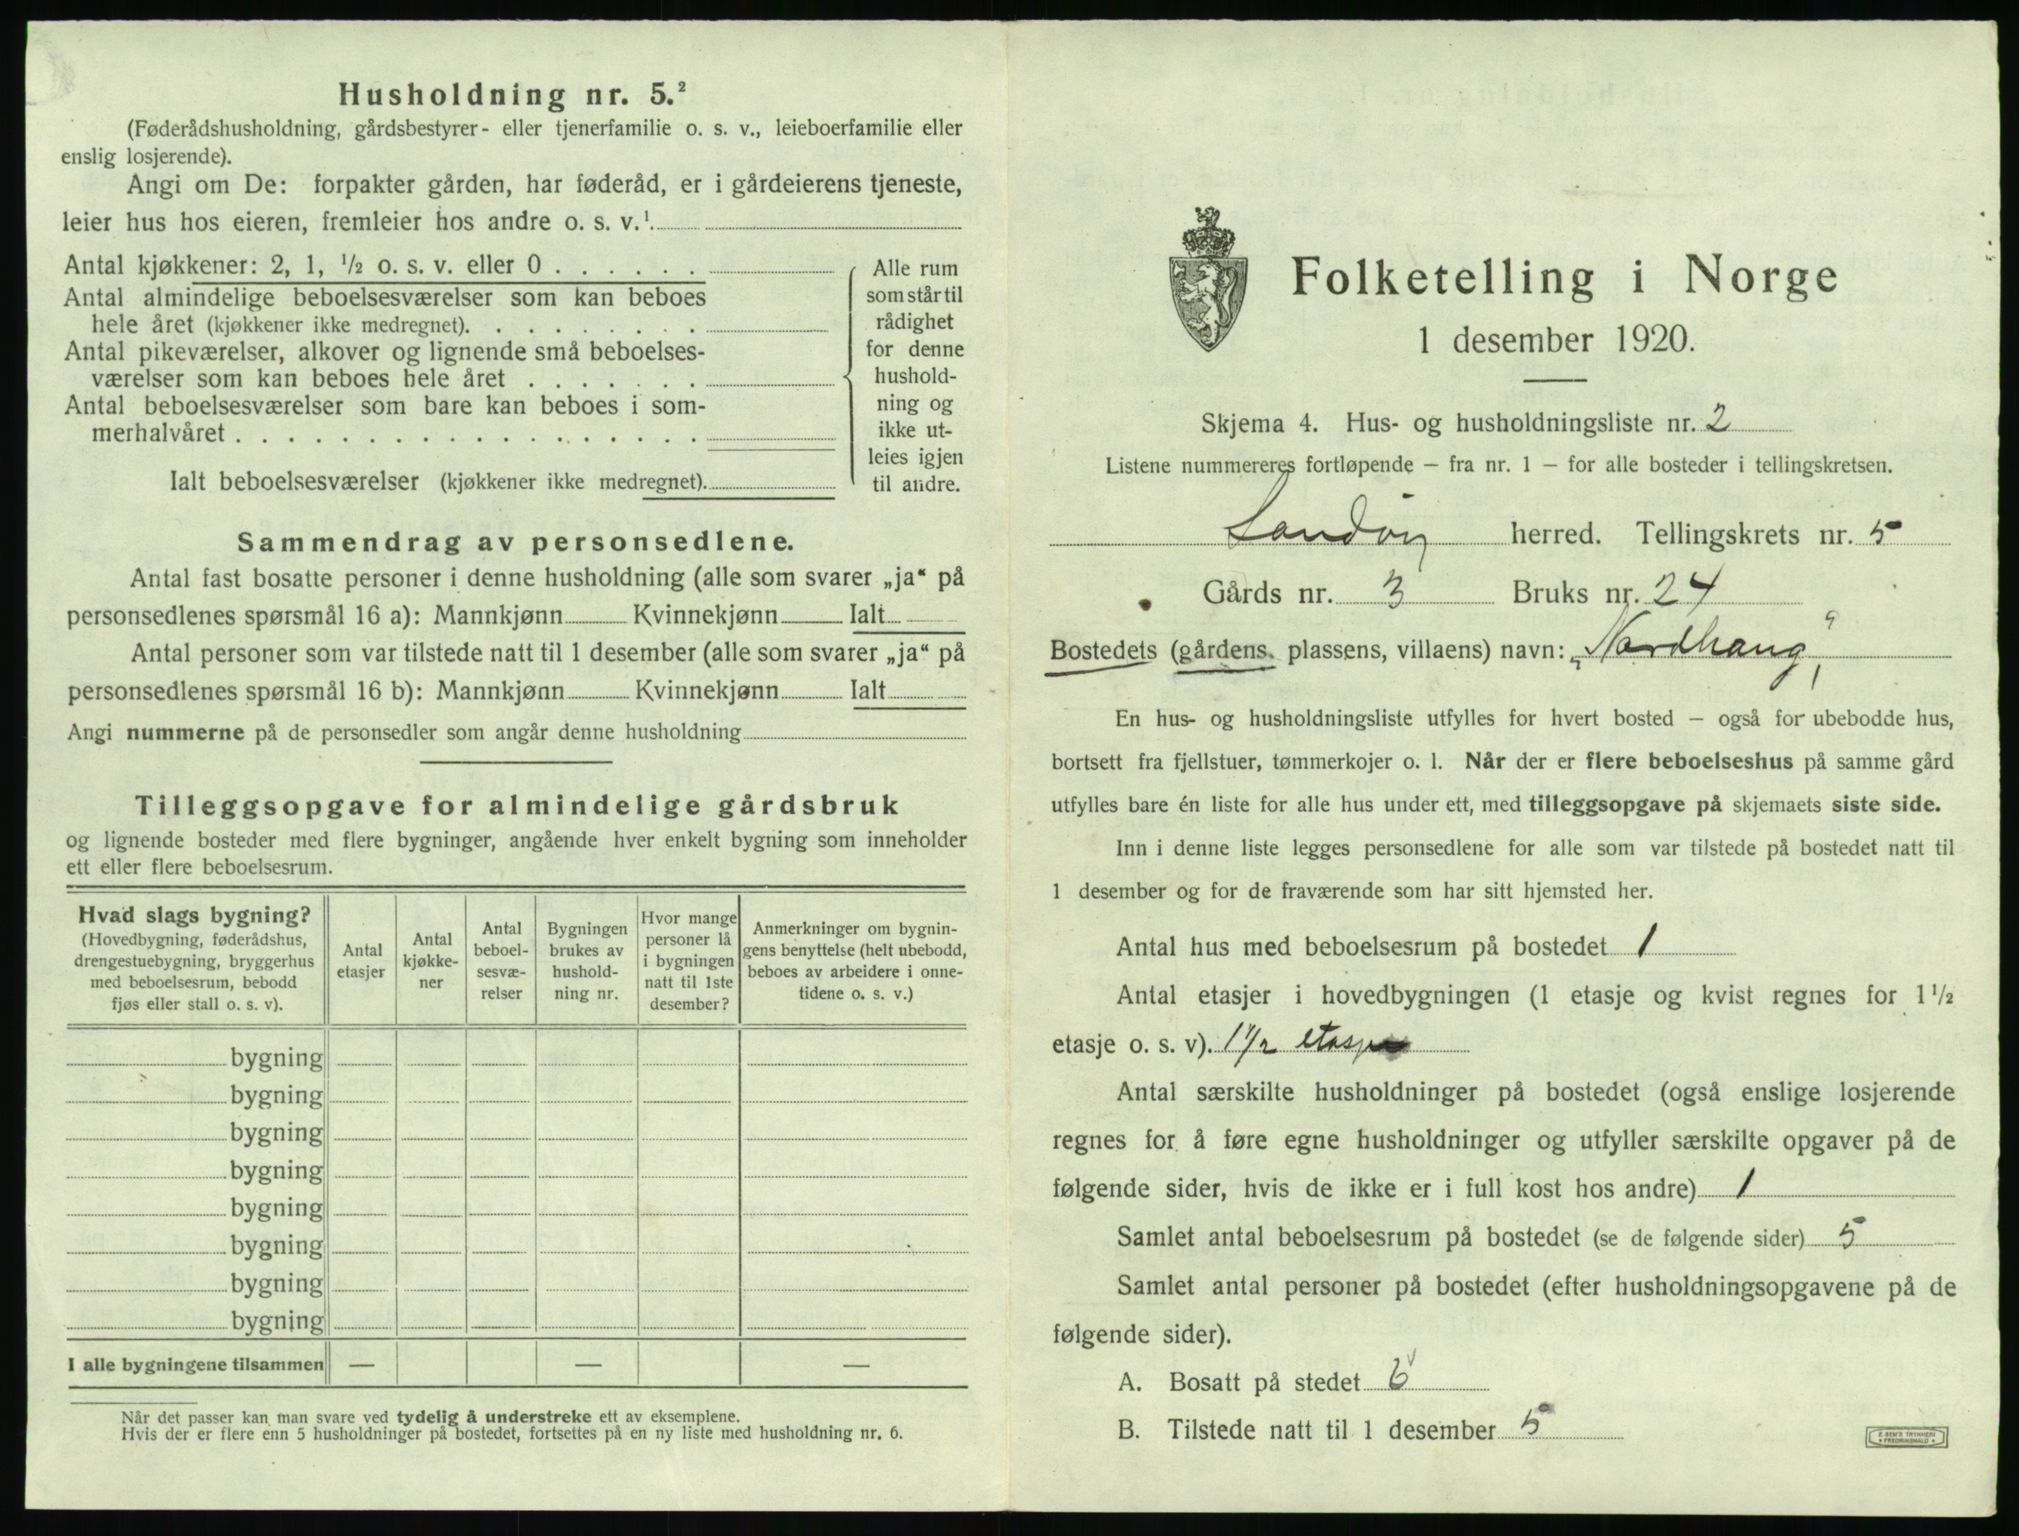 Husholdning nr. 5.²
(Føderådshusholdning, gårdsbestyrer- eller tjenerfamilie o. s. v., leieboerfamilie eller
enslig losjerende).
Angi om De: forpakter gården, har føderåd, er i gårdeierens tjeneste,
leier hus hos eieren, fremleier hos andre o. s. v.¹
Antal kjøkkener: 2, 1, ½ o. s. v. eller 0 . . . . . .
Antal almindelige beboelsesværelser som kan beboes
hele året (kjøkkener ikke medregnet). . . . . . . . .
Antal pikeværelser, alkover og lignende små beboelses-
værelser som kan beboes hele året . . . . . . .
Antal beboelsesværelser som bare kan beboes i som-
merhalvåret . . . . . . . . . . . . . . . . . .
Ialt beboelsesværelser (kjøkkener ikke medregnet).
Alle rum
som står til
rådighet
for denne
hushold-
ning og
ikke ut-
leies igjen
til andre.
Sammendrag av personsedlene.
Antal fast bosatte personer i denne husholdning (alle som svarer „ja“ på
personsedlenes spørsmål 16 a): Mannkjønn Kvinnekjønn Ialt
Antal personer som var tilstede natt til 1 desember (alle som svarer „ja“ på
personsedlenes spørsmål 16 b): Mannkjønn Kvinnekjønn Ialt
Angi nummerne på de personsedler som angår denne husholdning
Tilleggsopgave for almindelige gårdsbruk
og lignende bosteder med flere bygninger, angående hver enkelt bygning som inneholder
ett eller flere beboelsesrum.
Hvad slags bygning?
(Hovedbygning, føderådshus,
drengestuebygning, bryggerhus
med beboelsesrum, bebodd
fjøs eller stall o. s. v).
Antal
etasjer
Antal
kjøkke-
ner
Antal
beboel-
sesvæ-
relser
Bygningen
brukes av
hushold-
ning nr.
Hvor mange
personer lå
i bygningen
natt til 1ste
desember?
Anmerkninger om bygnin-
gens benyttelse (helt ubebodd,
beboes av arbeidere i onne-
tidene o. s. v.)
bygning
bygning
bygning
bygning
bygning
bygning
bygning
bygning
I alle bygningene tilsammen — — —
Når det passer kan man svare ved tydelig å understreke ett av eksemplene.
Hvis der er flere enn 5 husholdninger på bostedet, fortsettes på en ny liste med husholdning nr. 6.
Folketelling i Norge
1 desember 1920.
Skjema 4. Hus- og husholdningsliste nr. 2
Listene nummereres fortløpende – fra nr. 1 – for alle bosteder i tellingskretsen.
Sandøy herred. Tellingskrets nr. 5
Gårds nr. 3 Bruks nr. 24
Bostedets (gårdens, plassens, villaens) navn: „Nordhaug“
En hus- og husholdningsliste utfylles for hvert bosted – også for ubebodde hus,
bortsett fra fjellstuer, tømmerkojer o. l. Når der er flere beboelseshus på samme gård
utfylles bare én liste for alle hus under ett, med tilleggsopgave på skjemaets siste side.
Inn i denne liste legges personsedlene for alle som var tilstede på bostedet natt til
1 desember og for de fraværende som har sitt hjemsted her.
Antal hus med beboelsesrum på bostedet 1
Antal etasjer i hovedbygningen (1 etasje og kvist regnes for 1½
etasje o. s. v). 1½ etasje
Antal særskilte husholdninger på bostedet (også enslige losjerende
regnes for å føre egne husholdninger og utfyller særskilte opgaver på de
følgende sider, hvis de ikke er i full kost hos andre) 1
Samlet antal beboelsesrum på bostedet (se de følgende sider) 5
Samlet antal personer på bostedet (efter husholdningsopgavene på de
følgende sider).
A. Bosatt på stedet 6
B. Tilstede natt til 1 desember 5
E. SEM'S TRYKKERI
FREDRIKSHALD